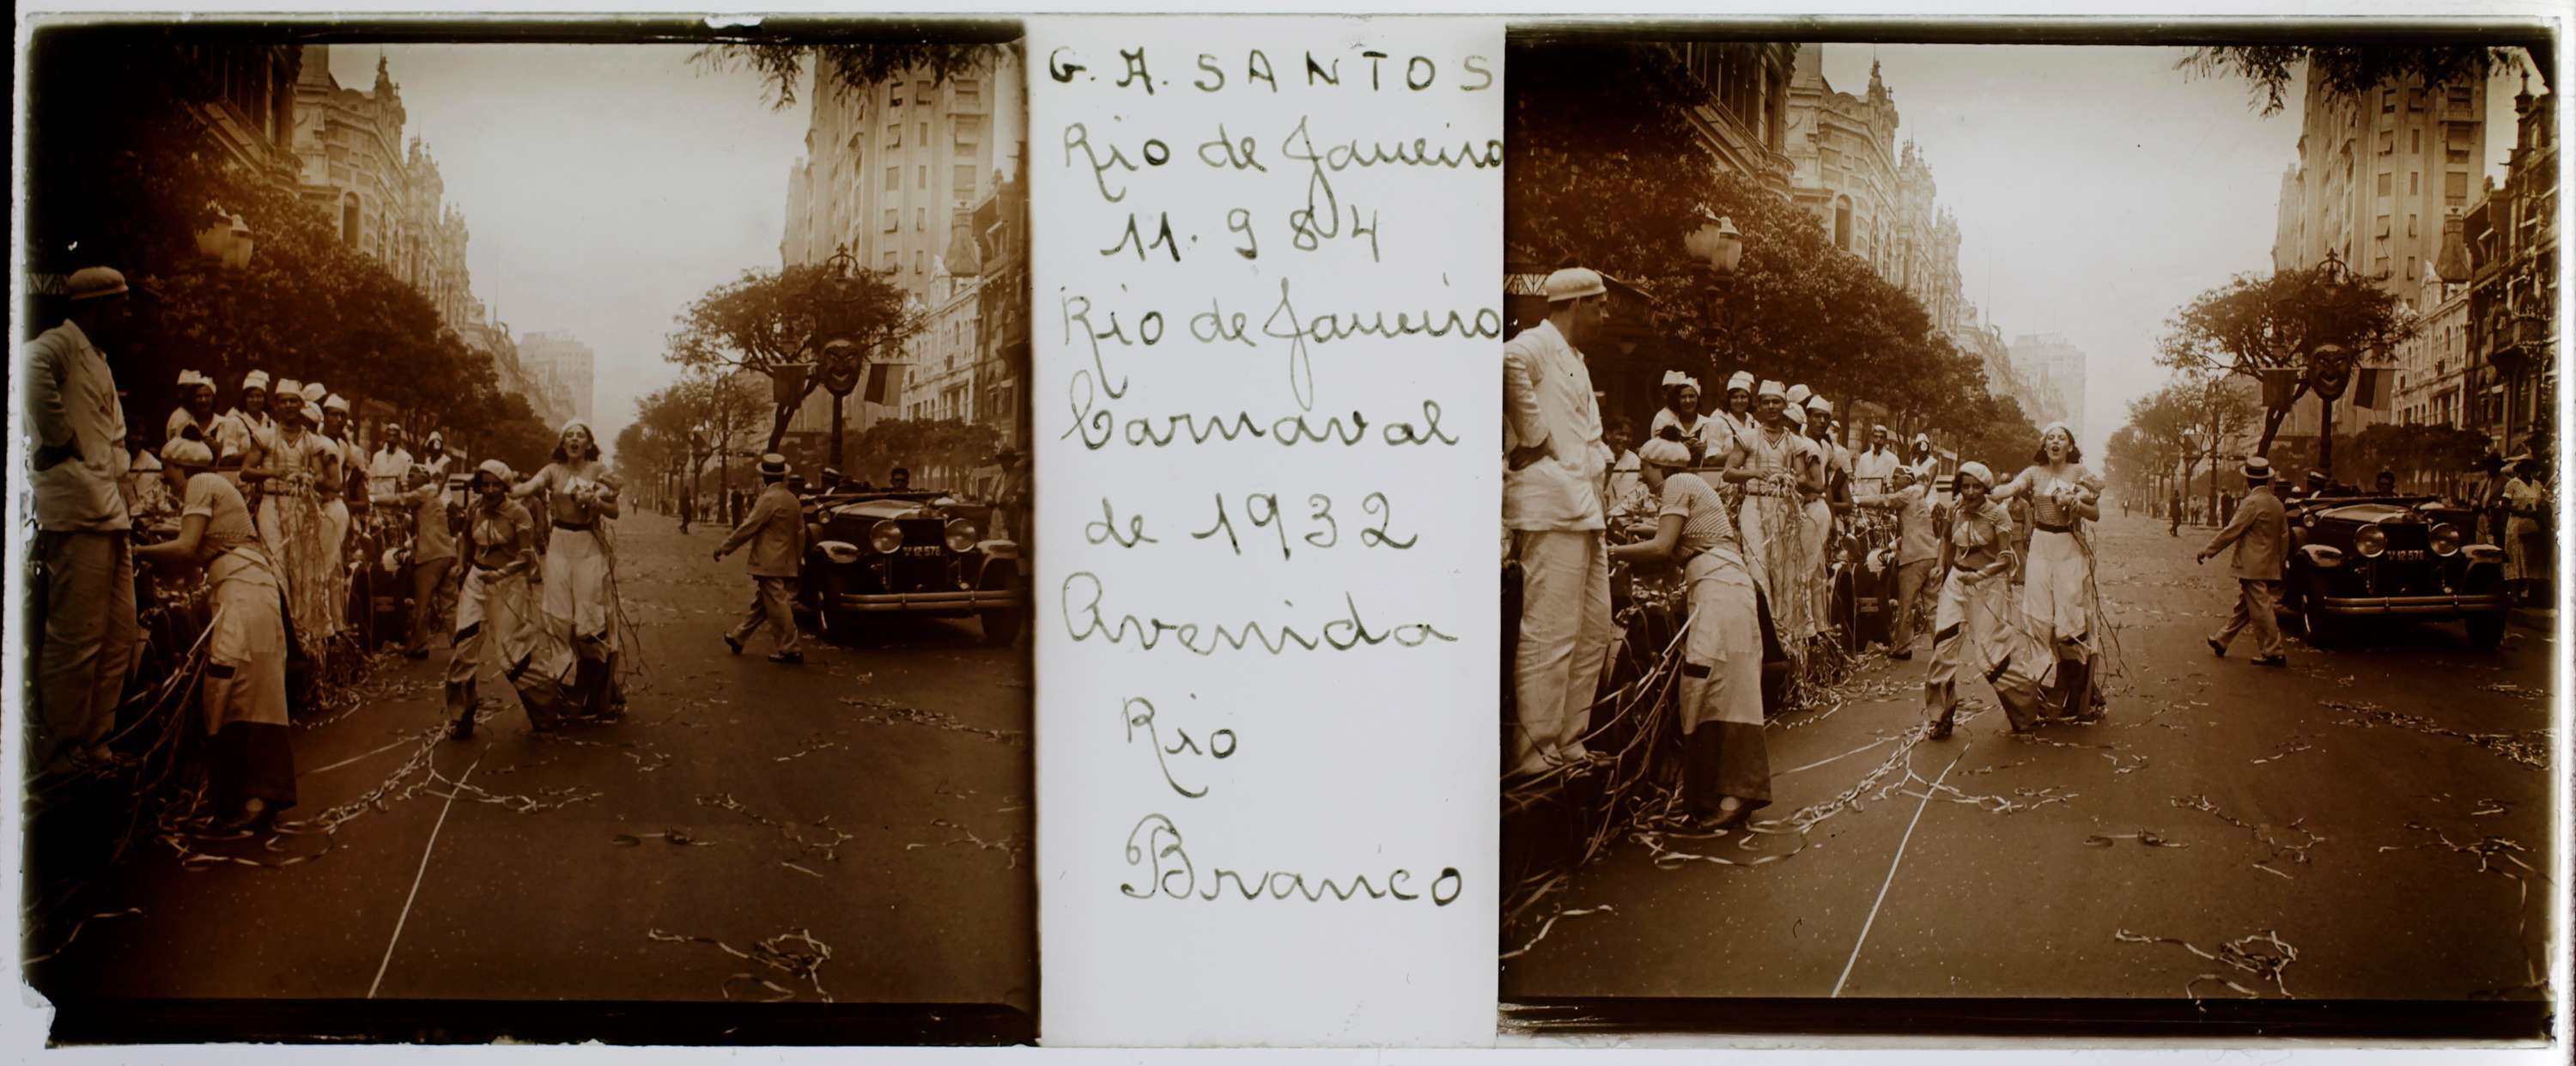 G. A. SANTOS
Rio de Janeiro
11.984
Rio de Janeiro
Carnaval
de 1932
Avenida
Rio
Branco
12 578
12 578